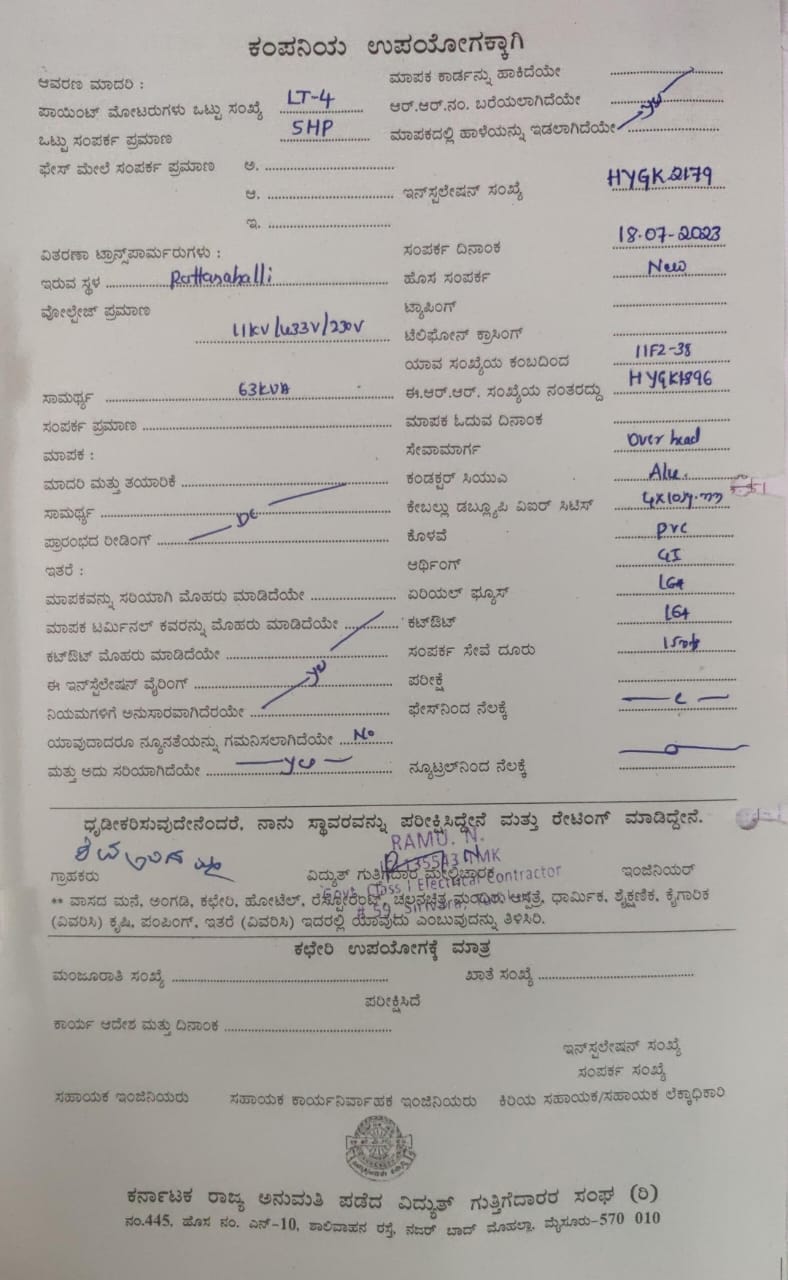 ಕಂಪನಿಯ ಉಪಯೋಗಕ್ಕಾಗಿ
ಆವರಣ ಮಾದರಿ :
ಮಾಪಕ ಕಾರ್ಡನ್ನು ಹಾಕಿದೆಯೇ ....................
ಪಾಯಿಂಟ್ ಮೋಟರುಗಳು ಒಟ್ಟು ಸಂಖ್ಯೆ LT-4
ಆರ್.ಆರ್.ನಂ. ಬರೆಯಲಾಗಿದೆಯೇ ....................
ಒಟ್ಟು ಸಂಪರ್ಕ ಪ್ರಮಾಣ 5HP
ಮಾಪಕದಲ್ಲಿ ಹಾಳೆಯನ್ನು ಇಡಲಾಗಿದೆಯೇ ....................
ಫೇಸ್ ಮೇಲೆ ಸಂಪರ್ಕ ಪ್ರಮಾಣ ಅ. ....................
ಆ. ....................
ಇನ್‌ಸ್ಟಲೇಷನ್ ಸಂಖ್ಯೆ HYGK2179
ಇ. ....................
ವಿತರಣಾ ಟ್ರಾನ್ಸ್‌ಪಾರ್ಮರುಗಳು :
ಸಂಪರ್ಕ ದಿನಾಂಕ 18-07-2023
ಇರುವ ಸ್ಥಳ Rattasahalli
ಹೊಸ ಸಂಪರ್ಕ New
ವೋಲ್ಟೇಜ್ ಪ್ರಮಾಣ
ಟ್ಯಾಪಿಂಗ್ ....................
11KV/433V/230V
ಟೆಲಿಫೋನ್ ಕ್ರಾಸಿಂಗ್ ....................
ಯಾವ ಸಂಖ್ಯೆಯ ಕಂಬದಿಂದ 11F2-38
ಸಾಮರ್ಥ್ಯ 63KVA
ಈ.ಆರ್.ಆರ್. ಸಂಖ್ಯೆಯ ನಂತರದ್ದು HYGK1896
ಸಂಪರ್ಕ ಪ್ರಮಾಣ ....................
ಮಾಪಕ ಓದುವ ದಿನಾಂಕ ....................
ಮಾಪಕ :
ಸೇವಾಮಾರ್ಗ Over head
ಮಾದರಿ ಮತ್ತು ತಯಾರಿಕೆ ....................
ಕಂಡಕ್ಟರ್ ಸಿಯುಎ Alu.
ಸಾಮರ್ಥ್ಯ ....................
ಕೇಬಲ್ಲು ಡಬ್ಲ್ಯೂಪಿ ವಿಐರ್ ಸಿಟಿಸ್
ಪ್ರಾರಂಭದ ರೀಡಿಂಗ್ ....................
ಕೊಳವೆ PVC
ಇತರೆ :
ಆರ್ಥಿಂಗ್ GI
ಮಾಪಕವನ್ನು ಸರಿಯಾಗಿ ಮೊಹರು ಮಾಡಿದೆಯೇ ....................
ಏರಿಯಲ್ ಫ್ಯೂಸ್ 16A
ಮಾಪಕ ಟರ್ಮಿನಲ್ ಕವರನ್ನು ಮೊಹರು ಮಾಡಿದೆಯೇ ....................
ಕಟ್‌ಔಟ್ 16A
ಕಟ್‌ಔಟ್ ಮೊಹರು ಮಾಡಿದೆಯೇ ....................
ಸಂಪರ್ಕ ಸೇವೆ ದೂರು
ಈ ಇನ್‌ಸ್ಟೆಲೇಷನ್ ವೈರಿಂಗ್ ....................
ಪರೀಕ್ಷೆ ....................
ನಿಯಮಗಳಿಗೆ ಅನುಸಾರವಾಗಿದೆರಯೇ ....................
ಫೇಸ್‌ನಿಂದ ನೆಲಕ್ಕೆ ....................
ಯಾವುದಾದರೂ ನ್ಯೂನತೆಯನ್ನು ಗಮನಿಸಲಾಗಿದೆಯೇ No
ಮತ್ತು ಅದು ಸರಿಯಾಗಿದೆಯೇ ....................
ನ್ಯೂಟ್ರಲ್‌ನಿಂದ ನೆಲಕ್ಕೆ ....................
ಧೃಡೀಕರಿಸುವುದೇನೆಂದರೆ, ನಾನು ಸ್ಥಾವರವನ್ನು ಪರೀಕ್ಷಿಸಿದ್ದೇನೆ ಮತ್ತು ರೇಟಿಂಗ್ ಮಾಡಿದ್ದೇನೆ.
RAMU. N.
ಗ್ರಾಹಕರು ವಿದ್ಯುತ್ ಗುತ್ತಿಗೆದಾರ ಮೇಲ್ವಿಚಾರಕ ಇಂಜಿನಿಯರ್
Govt. Class I Electrical Contractor
** ವಾಸದ ಮನೆ, ಅಂಗಡಿ, ಕಛೇರಿ, ಹೋಟೆಲ್, ರೆಸ್ಟೋರೆಂಟ್, ಚಲನಚಿತ್ರ ಮಂದಿರು ಆಸ್ಪತ್ರೆ, ಧಾರ್ಮಿಕ, ಶೈಕ್ಷಣಿಕ, ಕೈಗಾರಿಕ
(ವಿವರಿಸಿ) ಕೃಷಿ, ಪಂಪಿಂಗ್, ಇತರೆ (ವಿವರಿಸಿ) ಇದರಲ್ಲಿ ಯಾವುದು ಎಂಬುವುದನ್ನು ತಿಳಿಸಿರಿ.
ಕಛೇರಿ ಉಪಯೋಗಕ್ಕೆ ಮಾತ್ರ
ಮಂಜೂರಾತಿ ಸಂಖ್ಯೆ .................... ಖಾತೆ ಸಂಖ್ಯೆ ....................
ಪರೀಕ್ಷಿಸಿದೆ
ಕಾರ್ಯ ಆದೇಶ ಮತ್ತು ದಿನಾಂಕ ....................
ಇನ್‌ಸ್ಟಲೇಷನ್ ಸಂಖ್ಯೆ
ಸಂಪರ್ಕ ಸಂಖ್ಯೆ
ಸಹಾಯಕ ಇಂಜಿನಿಯರು ಸಹಾಯಕ ಕಾರ್ಯನಿರ್ವಾಹಕ ಇಂಜಿನಿಯರು ಕಿರಿಯ ಸಹಾಯಕ/ಸಹಾಯಕ ಲೆಕ್ಕಾಧಿಕಾರಿ
ಕರ್ನಾಟಕ ರಾಜ್ಯ ಅನುಮತಿ ಪಡೆದ ವಿದ್ಯುತ್ ಗುತ್ತಿಗೆದಾರರ ಸಂಘ (ರಿ)
ನಂ.445, ಹೊಸ ನಂ. ಎನ್-10, ಶಾಲಿವಾಹನ ರಸ್ತೆ, ನಜರ್ ಬಾದ್ ಮೊಹಲ್ಲಾ, ಮೈಸೂರು-570 010